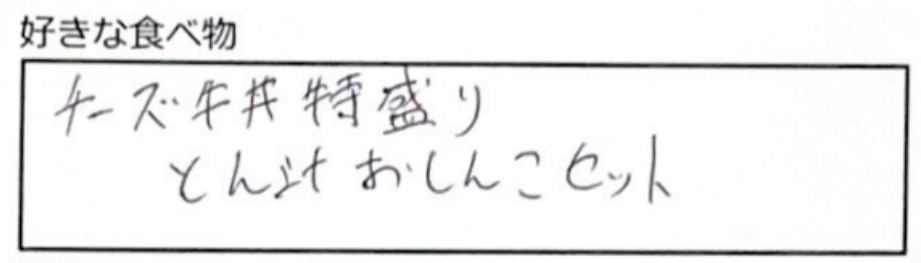 好きな食べ物
チーズ牛丼特盛り
とん汁おしんこセット